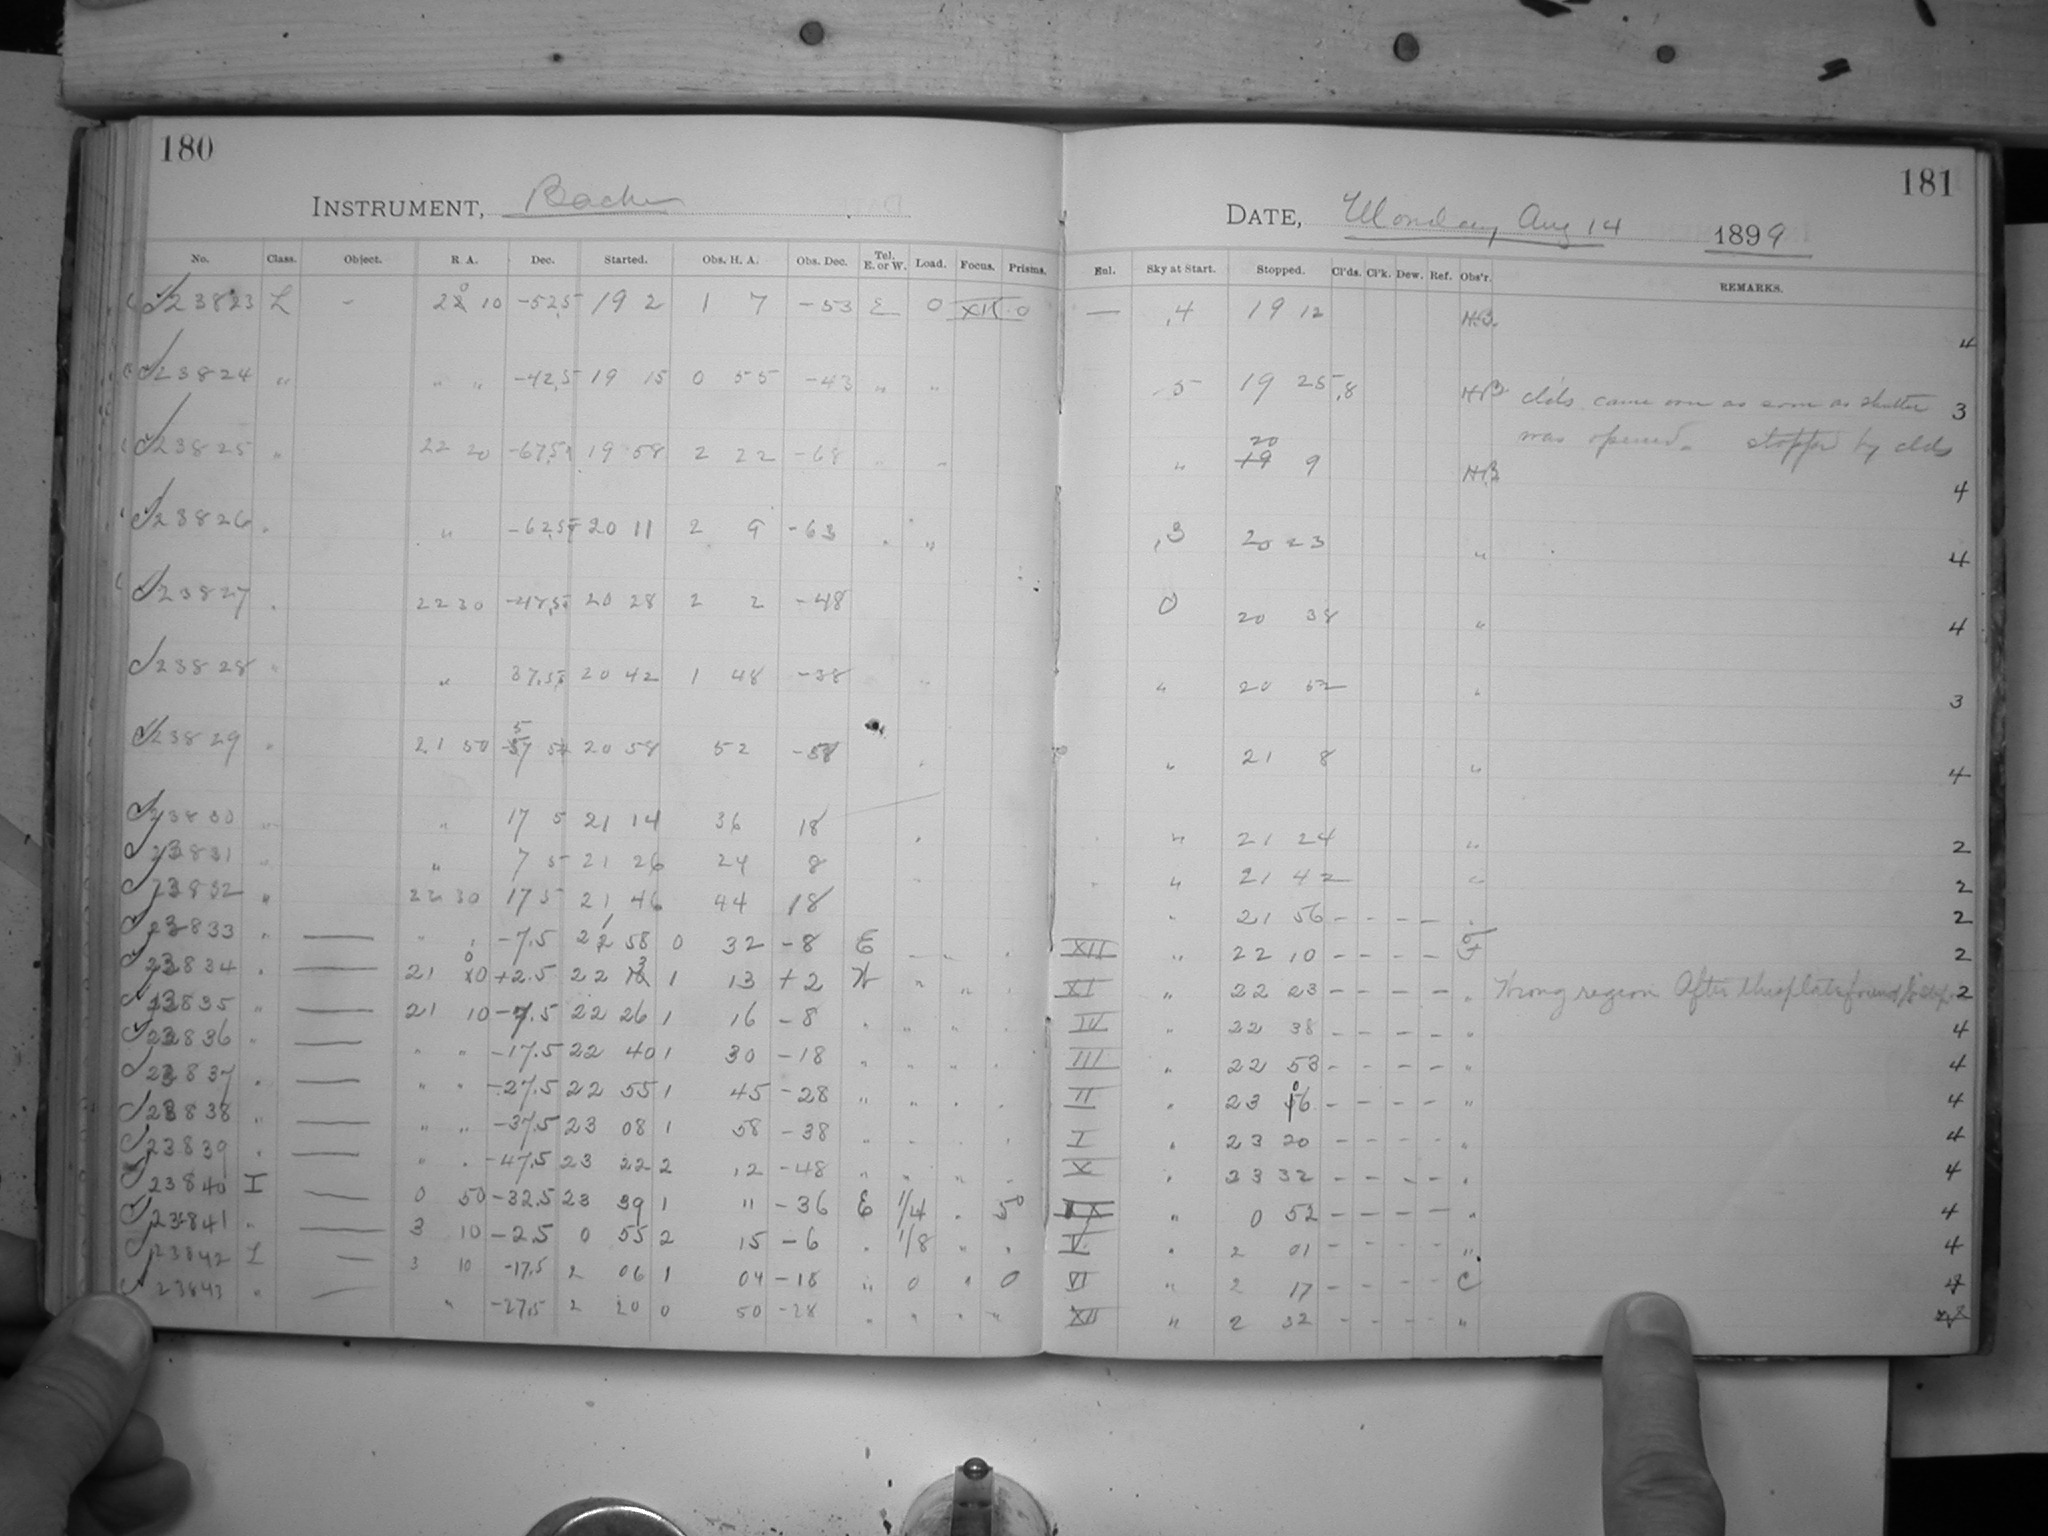 180
INSTRUMENT, Bache
No. Class. Object. R. A. Dec. Started. Obs. H. A. Obs. Dec. Tel. E. or W. Load. Focus. Prisms.
23823 L - 22 10 -52,5 19 2 1 7 -53 E 0 XII 0
23824 " " " -42,5 19 15 0 55 -43 " "
23825 " 22 20 -67,5 19 58 2 22 -68 " "
23826 " " -62,5 20 11 2 9 -63 " "
23827 " 22 30 -48,5 20 28 2 2 -48
23828 " " 37,5 20 42 1 48 -38 "
23829 " 21 50 20 58 52 -58 "
23830 " " 17 5 21 14 36 18 "
23831 " " 7 5 21 26 24 8
23832 " 22 30 17 5 21 46 44 18
23833 " — " " -7.5 21 58 0 32 -8 E
23834 " — 21 00 +2.5 22 13 1 13 +2 W " " "
23835 " — 21 10 -7.5 22 26 1 16 -8 " " " "
23836 " — " " -17.5 22 40 1 30 -18 " " " "
23837 " — " " -27.5 22 55 1 45 -28 " " " "
23838 " — " " -37.5 23 08 1 58 -38 " " " "
23839 " — " " -47.5 23 22 2 12 -48 " " " "
23840 I — 0 50 -32.5 23 39 1 11 -36 E 1/4 " 50
23841 " — 3 10 -2.5 0 55 2 15 -6 " 1/8 " "
23842 L — 3 10 -17.5 2 06 1 04 -18 " 0 " 0
23843 " — " -27.5 2 20 0 50 -28 " " " "
181
DATE, Monday Aug 14 1899
Enl. Sky at Start. Stopped. Cl'ds. Cl'k. Dew. Ref. Obs'r. REMARKS.
— ,4 19 12 H.B. 4
5 19 25 ,8 HB clds came over as soon as shutter 3
was opened. stopped by clds
" 20 9 HB 4
,3 20 23 " 4
0 20 38 " 4
" 20 52 " 3
" 21 8 " 4
" 21 24 " 2
" 21 42 " 2
" 21 56 - - - - " 2
XII " 22 10 - - - - 2
XI " 22 23 - - - - " Wrong region After this plate found 2
IV " 22 38 - - - - " 4
III " 22 53 - - - - " 4
II " 23 06 - - - - " 4
I " 23 20 - - - - " 4
X " 23 32 - - - - " 4
" 0 52 - - - - " 4
V " 2 01 - - - - " 4
VI " 2 17 - - - - C
XII " 2 32 - - - - "